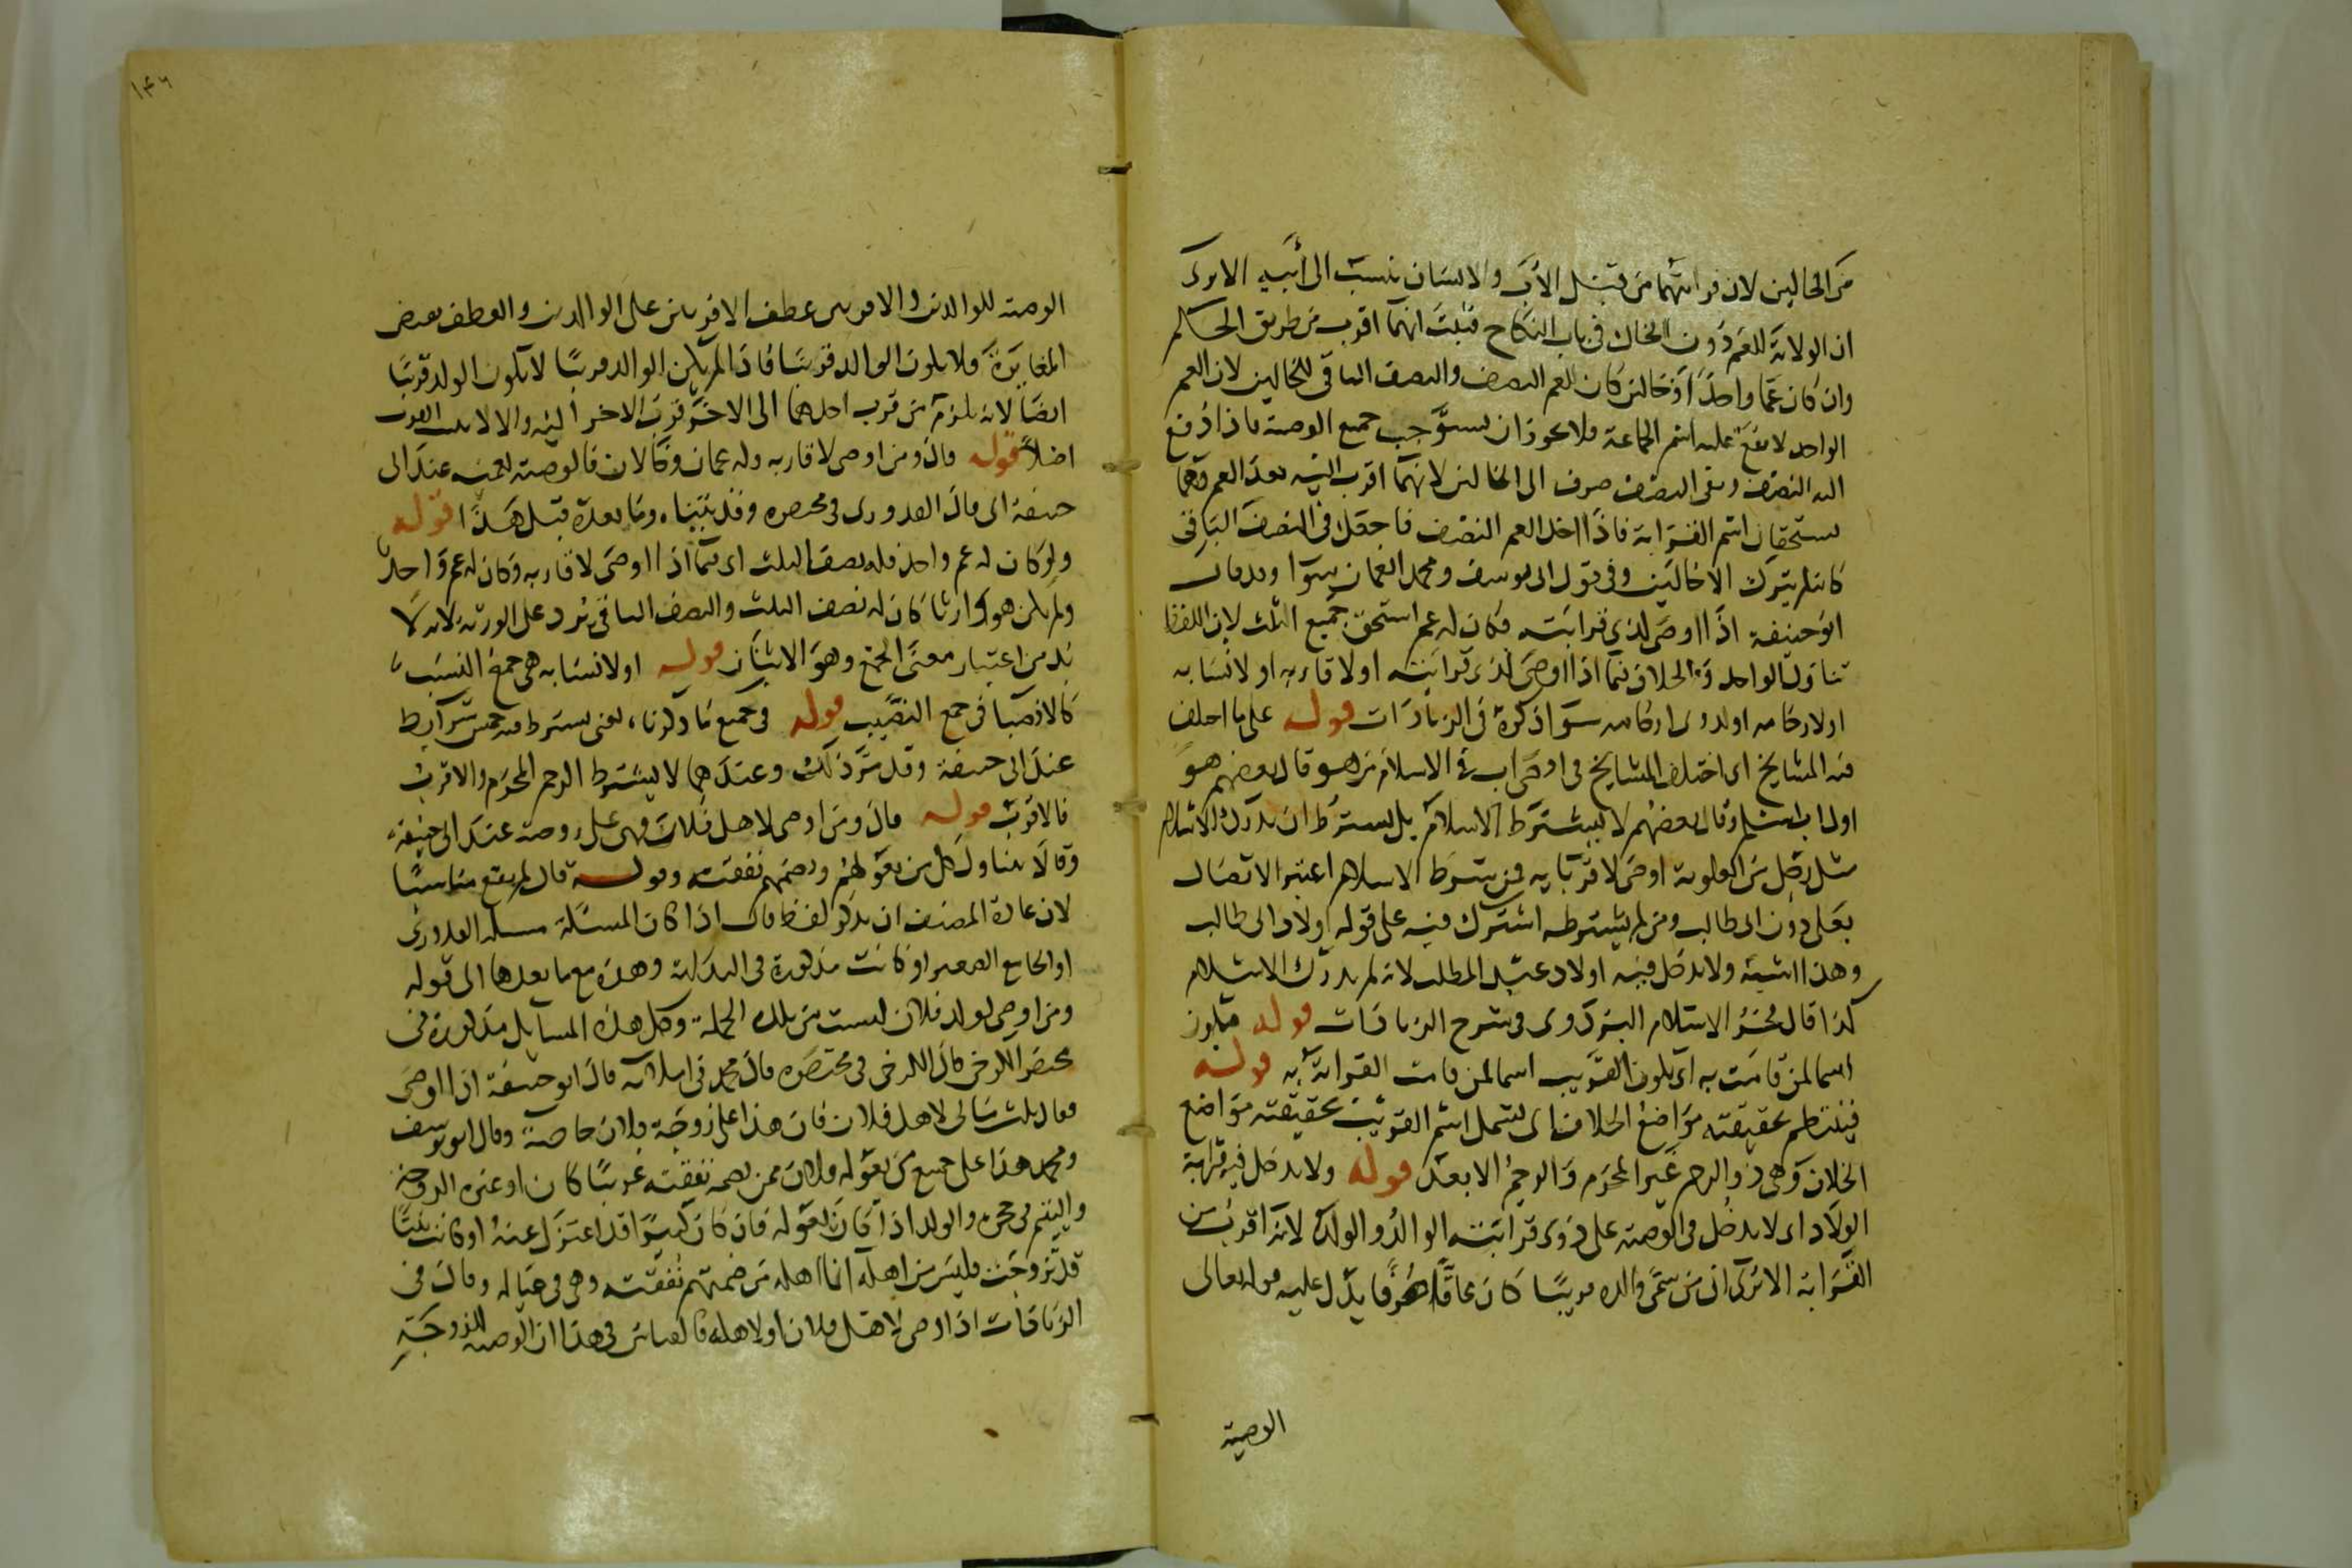 من الخالين لان قرابتهما من قبل الأب والانسان ينسب الى أبيه الا يرى
ان الولاية للعم دون الخال في باب النكاح فثبت انهما اقرب من طريق الحكم
وان كان عما واحدا وخالين كان للعم النصف والنصف الباقي للخالين لان العم
الواحد لا يقع عليه اسم الجماعة فلا يجوز ان يستوجب جميع الوصية فاذا دفع
اليه النصف وبقى النصف صرف الى الخالين لانهما اقرب اليه بعد العم وهما
يستحقان اسم القرابة فاذا اخذ العم النصف فاجعل في النصف الباقي
كانه لم يترك الا خالين وفي قول ابى يوسف ومحمد العمان سوا وقد قال
ابو حنيفة اذا اوصى لذي قرابته فكان له عم استحق جميع الثلث لان اللفظ
تناول الواحد والخلاف فيما اذا اوصى لذى قرابته او لاقاربه او لانسابه
او لارحامه او لذوى ارحامه سوا ذكره في الزيادات قوله على ما اختلف
فيه المشايخ اى اختلف المشايخ في اقصى اب في الاسلام من هو قال بعضهم هو
اول اب اسلم وقال بعضهم لا يشترط الاسلام بل يشترط ان يدرك الاسلام
مثل رجل من العلوية اوصى لاقربايه فمن يشترط الاسلام اعتبر الاتصال
بعلى دون ابى طالب ومن لم يشترطه اشترك فيه على قوله اولاد ابى طالب
وهذا اشبه ولا يدخل فيه اولاد عبد المطلب لانه لم يدرك الاسلام
كذا قال فخر الاسلام البزدوى في شرح الزيادات قوله فيكون
اسما لمن قامت به اى يكون القريب اسما لمن قامت القرابة به قوله
فينتظم بحقيقته مواضع الخلاف اى يشمل اسم القريب بحقيقته مواضع
الخلاف وهى ذو الرحم غير المحرم والرحم الابعد قوله ولا يدخل فيه قرابة
الولاد اى لا يدخل في الوصية على ذوى قرابته الوالد والولد لانه اقرب من
القرابة الا ترى ان من سمى والده قريبا كان عاقا عرفا يدل عليه قوله تعالى
الوصية
١٤٦
الوصية للوالدين والاقربين عطف الاقربين على الوالدين والعطف يقتضى
المغايرة فلا يكون الوالد قريبا فاذا لم يكن الوالد قريبا لا يكون الولد قريبا
ايضا لانه يلزم من قرب احدهما الى الاخر قرب الاخر اليه والا لا يثبت القرب
اصلا قوله قال ومن اوصى لاقاربه وله عمان وخالان فالوصية لعميه عند ابى
حنيفة اى قال القدورى في مختصره وقد بيناه وما بعده قبل هذا قوله
ولو كان له عم واحد فله نصف الثلث اى فيما اذا اوصى لاقاربه وكان له عم واحد
ولم يكن هو وارثا كان له نصف الثلث والنصف الباقي يرد على الورثة لانه لا
بد من اعتبار معنى الجمع وهو الاثنان قوله او لانسابه هي جمع النسب
كالانصبا في جمع النصيب قوله في جميع ما ذكرنا، يعنى يشترط فيه خمس شرايط
عند ابى حنيفة وقد مر ذلك وعندهما لا يشترط الرحم المحرم والاقرب
فالاقرب قوله قال ومن اوصى لاهل فلان فهى على زوجته عند ابى حنيفة
وقالا يتناول كل من يعولهم وتضمهم نفقته وقوله قال لم يقع مناسبا
لان عادة المصنف ان يذكر لفظ قال اذا كان المسئلة مسئلة القدورى
او الجامع الصغير او كانت مذكورة في البداية وهذه مع ما بعدها الى قوله
ومن اوصى لولد فلان ليست من تلك الجملة وكل هذه المسايل مذكورة في
مختصر الكرخى قال الكرخى في مختصره قال محمد في املائه قال ابو حنيفة اذا اوصى
فقال ثلث مالى لاهل فلان فان هذا على زوجة فلان خاصة وقال ابو يوسف
ومحمد هذا على جميع من يعوله فلان ممن تضمه نفقته غريبا كان او غيره الزوجة
واليتيم في حجره والولد اذا كان يعوله فان كان كبيرا قد اعتزل عنه او كانت بنتا
قد تزوجت فليس من اهله انما اهله من ضمتهم نفقته وهى في عياله وقال في
الزيادات اذا اوصى لاهل فلان او لاهله فالقياس في هذا ان الوصية لزوجته